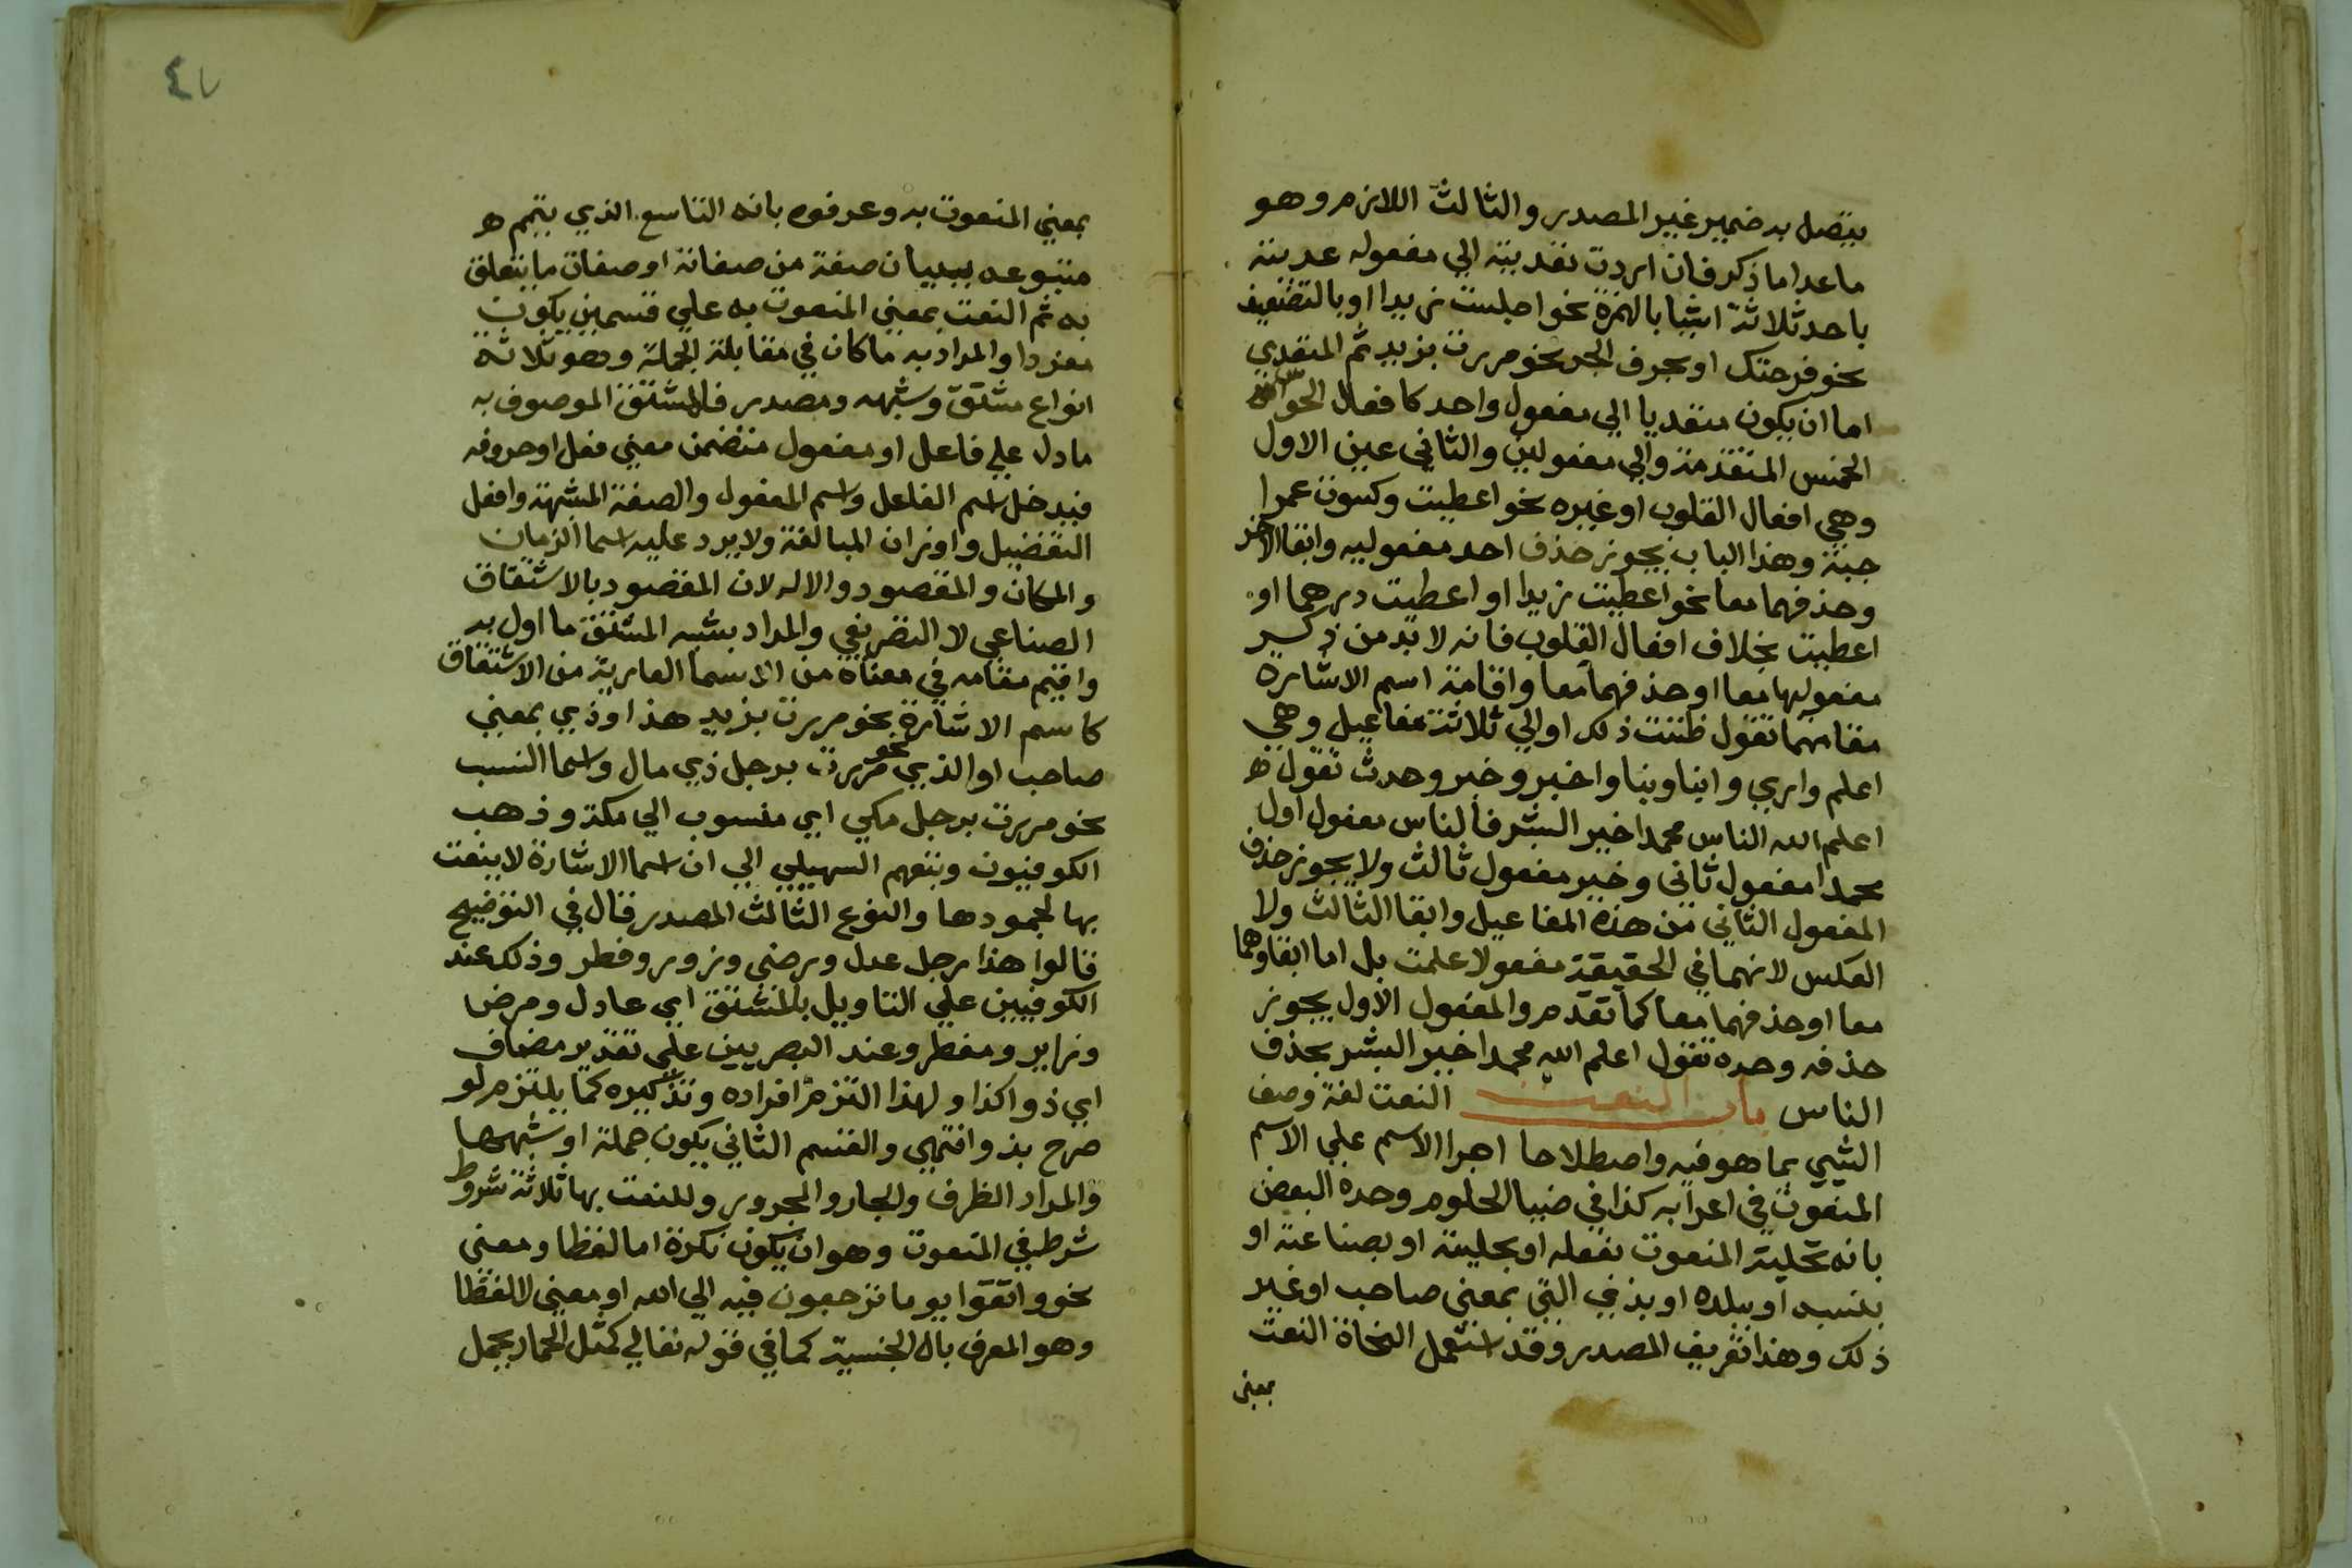 يتصل به ضمير غير المصدر والثالث اللازم وهو
ماعدا ما ذكر فان اردت تعديته الي مفعوله عديته
باحد ثلاثة اشيا بالهمزة نحو اجلست زيدا او بالتضعيف
نحو فرحتك او بحرف الجر نحو مررت بزيد ثم المتعدي
اما ان يكون متعديا الي مفعول واحد كافعال الحواس
الخمس المتقدمة والي مفعولين والثاني عين الاول
وهي افعال القلوب او غيره نحو اعطيت وكسوت عمرا
جبة وهذا الباب يجوز حذف احد مفعوليه وابقا الاخر
وحذفهما معا نحو اعطيت زيدا او اعطيت درهما او
اعطيت بخلاف افعال القلوب فانه لابد من ذكر
مفعوليها معا او حذفهما معا واقامة اسم الاشارة
مقامهما تقول ظننت ذلك او الي ثلاثة مفاعيل وهي
اعلم واري وانبا ونبا واخبر وخبر وحدث تقول
اعلم الله الناس محمدا خير البشر فالناس مفعول اول
محمدا مفعول ثاني وخير مفعول ثالث ولا يجوز حذف
المفعول الثاني من هذه المفاعيل وابقا الثالث ولا
العكس لانهما في الحقيقة مفعولا علمت بل اما ابقاوهما
معا او حذفهما معا كما تقدم والمفعول الاول يجوز
حذفه وحده تقول اعلم الله محمدا خير البشر بحذف
الناس باب النعت النعت لغة وصف
الشي بما هو فيه واصطلاحا اجرا الاسم علي الاسم
المنعوت في اعرابه كذا في ضيا الحلوم وحده البعض
بانه تحلية المنعوت بفعله او بحليته او بصناعته او
بنسبه او ببلده او بذي التي بمعني صاحب او غير
ذلك وهذا تعريف المصدر وقد استعمل النحاة النعت
بمعني
٤٧
بمعني المنعوت به وعرفوه بانه التابع الذي يتمم
متبوعه ببيان صفة من صفاته او صفات ما يتعلق
به ثم النعت بمعني المنعوت به علي قسمين يكون
مفردا والمراد به ما كان في مقابلة الجملة وهو ثلاثة
انواع مشتق وشبهه ومصدر فالمشتق الموصوف به
ما دل علي فاعل او مفعول متضمن معني فعل او حروفه
فيدخل اسم الفاعل واسم المفعول والصفة المشبهة وافعل
التفضيل واوزان المبالغة ولا يرد عليه اسما الزمان
والمكان والمقصود والاله لان المقصود بالاشتقاق
الصناعي لا التصريفي والمراد بشبه المشتق ما اول به
واقيم مقامه في معناه من الاسما العارية من الاشتقاق
كاسم الاشارة نحو مررت بزيد هذا او ذي بمعني
صاحب او الذي نحو مررت برجل ذي مال واسما النسب
نحو مررت برجل مكي اي منسوب الي مكة وذهب
الكوفيون وتبعهم السهيلي الي ان اسما الاشارة لا ينعت
بها لجمودها والنوع الثالث المصدر قال في التوضيح
قالوا هذا رجل عدل ورضي وزور وفطر وذلك عند
الكوفيين علي التاويل بالمشتق اي عادل ومرض
وزاير ومفطر وعند البصريين علي تقدير مضاف
اي ذو اكذا ولهذا التزم افراده وتذكيره كما يلتزم لو
صرح بذو انتهي والقسم الثاني يكون جملة او شبهها
والمراد الظرف والجار والمجرور وللنعت بها ثلاثة شروط
شرط في المنعوت وهو ان يكون نكرة اما لفظا ومعني
نحو واتقوا يوما ترجعون فيه الي الله او معني لا لفظا
وهو المعرف بال الجنسية كما في قوله تعالي كمثل الحمار يحمل